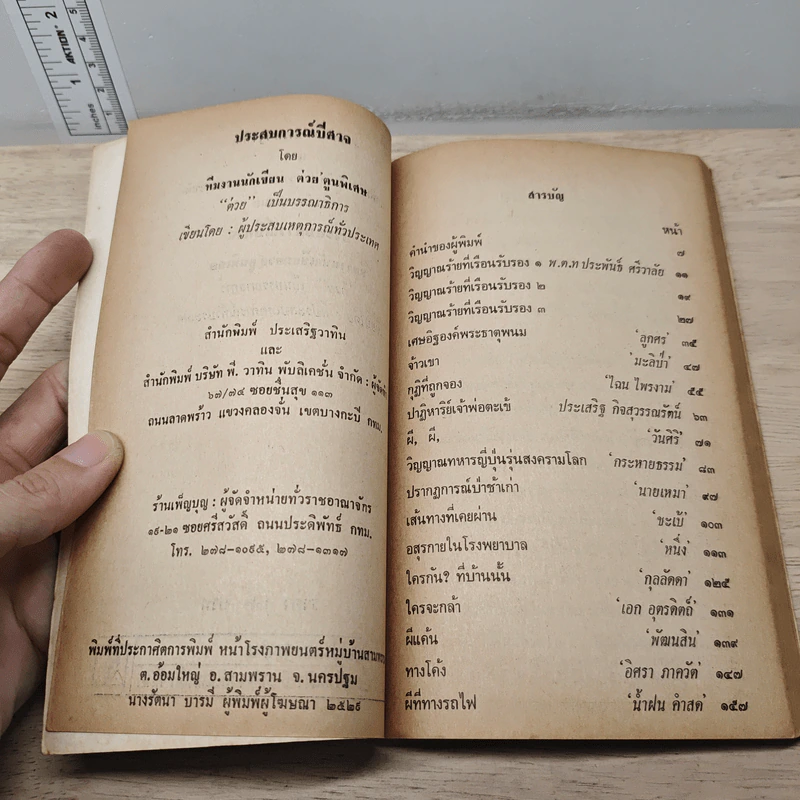 AKTION
inches
1
2
1
2
3
4
5
ประสบการณ์ปีศาจ
โดย
ทีมงานนักเขียน ต่วย'ตูนพิเศษ
"ต่วย" เป็นบรรณาธิการ
เขียนโดย : ผู้ประสบเหตุการณ์ทั่วประเทศ
สำนักพิมพ์ ประเสริฐวาทิน
และ
สำนักพิมพ์ บริษัท พี. วาทิน พับลิเคชั่น จำกัด :
๖๗/๗๔ ซอยชื่นสุข ๑๑๓
ถนนลาดพร้าว แขวงคลองจั่น เขตบางกะปี กทม.
ร้านเพ็ญบุญ : ผู้จัดจำหน่ายทั่วราชอาณาจักร
๑๙-๒๑ ซอยศรีสวัสดิ์ ถนนประดิพัทธ์ กทม.
โทร. ๒๗๘-๑๐๙๕, ๒๗๘-๑๓๑๗
พิมพ์ที่ประกาศิตการพิมพ์ หน้าโรงภาพยนตร์หมู่บ้าน
ต.อ้อมใหญ่ อ.สามพราน จ.นครปฐม
นางรัตนา บารมี ผู้พิมพ์ผู้โฆษณา ๒๕๒๙
สารบัญ
หน้า
คำนำของผู้พิมพ์ ๗
วิญญาณร้ายที่เรือนรับรอง ๑ พ.ต.ท ประพันธ์ ศรีวาลัย ๑๑
วิญญาณร้ายที่เรือนรับรอง ๒ ๑๙
วิญญาณร้ายที่เรือนรับรอง ๓ ๒๗
เศษอิฐองค์พระธาตุพนม 'ลูกศร' ๓๕
จ้าวเขา 'มะลิป่า' ๔๗
กุฏิที่ถูกจอง 'ไฉน ไพรงาม' ๕๕
ปาฏิหาริย์เจ้าพ่อตะเข้ ประเสริฐ กิจสุวรรณรัตน์ ๖๓
ผี, ผี, 'วันศิริ' ๗๑
วิญญาณทหารญี่ปุ่นรุ่นสงครามโลก 'กระหายธรรม' ๘๓
ปรากฏการณ์ป่าช้าเก่า 'นายเหมา' ๙๗
เส้นทางที่เคยผ่าน 'ชะเบ้' ๑๐๓
อสุรกายในโรงพยาบาล 'หนึ่ง' ๑๑๓
ใครกัน? ที่บ้านนั้น 'กุลลัดดา' ๑๒๕
ใครจะกล้า 'เอก อุตรดิตถ์' ๑๓๑
ผีแค้น 'พัฒนสิน' ๑๓๙
ทางโค้ง 'อิศรา ภาควัต' ๑๔๗
ผีที่ทางรถไฟ 'น้ำฝน คำสด' ๑๕๗